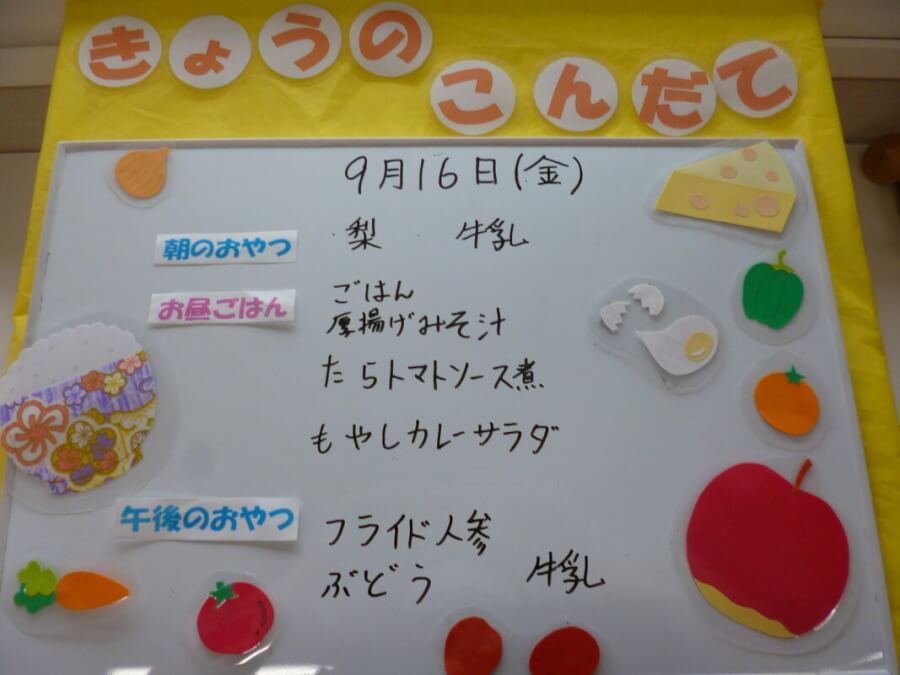 きょうの
こんだて
9月16日(金)
朝のおやつ 梨 牛乳
お昼ごはん ごはん
厚揚げみそ汁
たらトマトソース煮
もやしカレーサラダ
午後のおやつ フライド人参
ぶどう 牛乳